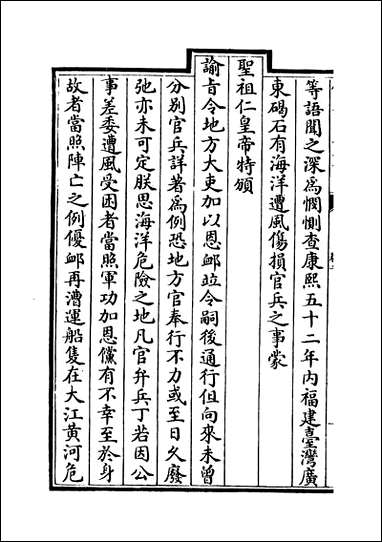 等語聞之深為憫惻查康熙五十二年內福建臺灣廣
東碣石有海洋遭風傷損官兵之事蒙
聖祖仁皇帝特頒
諭旨令地方大吏加以恩䘏竝令嗣後通行但向來未曾
分别官兵詳著為例恐地方官奉行不力或至日久廢
弛亦未可定朕思海洋危險之地凡官弁兵丁若因公
事差委遭風受困者當照軍功加恩儻有不幸至於身
故者當照陣亡之例優䘏再漕運船隻在大江黄河危